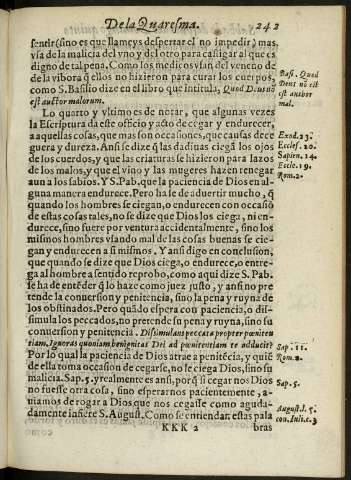 De la Quaresma.
242
sentir(sino es que llameys despertar el no impedir) mas,
vsa de la malicia del vno y del otro para castigar al que es
digno de tal pena. Como los medicos vsan del veneno de
de la vibora q̃ ellos no hizieron para curar los cuerpos,
como S. Basilio dize en el libro que intitula, Quod Deus nõ
est auctor malorum.
Basi. Quod
Deus nõ cit
est author
mal.
Lo quarto y vltimo es de notar, que algunas vezes
la Escriptura da este officio y aẽo de cegar y endurecer,
a aquellas cosas, que mas son occasiones, que causas de ce
guera y dureza. Ansi se dize q̃ las dadiuas ciegã los ojos
de los cuerdos, y que las criaturas se hizieron para lazos
de los malos, y que el vino y las mugeres hazen renegar
aun a los sabios. Y S. Pab. que la paciencia de Dios en al-
guna manera endurece. Pero ha se de aduertir mucho, q̃
quando los hombres se ciegan, o endurecen con occasiõ
de estas cosas tales, no se dize que Dios los ciega, ni en-
durece, sino fuere por ventura accidentalmente, sino los
mismos hombres vsando mal de las cosas buenas se cie-
gan y endurecen a si mismos. Y ansi digo en conclusion,
que quando se dize que Dios ciega, o endurece, o entre-
ga al hombre a sentido reprobo, como aqui dize S. Pab.
se ha de entẽder q̃ lo haze como juez justo, y ansi no pre
tende la conuersion y penitencia, sino la pena y ruyna de
los obstinados. Pero quãdo espera con paciencia, o dis-
simula los peccados, no pretende su pena y ruyna, sino su
conuersion y penitencia. Dissimulans peccata propter pœnitẽ
tiam. Ignoras quoniam benignitas Dei ad pœnitentiam te adducit?
Por lo qual la paciencia de Dios atrae a penitẽcia, y quiẽ
de ella toma occasion de cegarse, no se ciega Dios, sino su
malicia. Sap. 5. y realmente es ansi, porq̃ si cegar nos Dios
no fuesse otra cosa, sino esperarnos pacientemente, a-
uiamos de rogar a Dios que nos cegasse como aguda-
damente infiere S. August. Como se entiendan estas pala
Exod. 23.
Eccles. 20.
Sapien. 14.
Eccle. 19.
Rom. 2.
Sap. 11.
Rom. 2.
Sap. 5.
August. l. 5.
con. Iuli. c. 3
KKK 2
bras